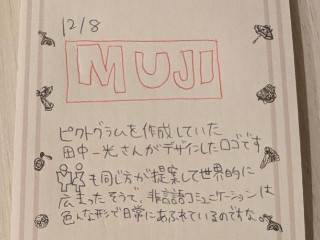 12/8
MUJI
ピクトグラムを作成していた
田中一光さんがデザインしたロゴです
も同じ方が提案して世界的に
広まったそうで、非言語コミュニケーションは
色んな形で日常にあふれているのですな。